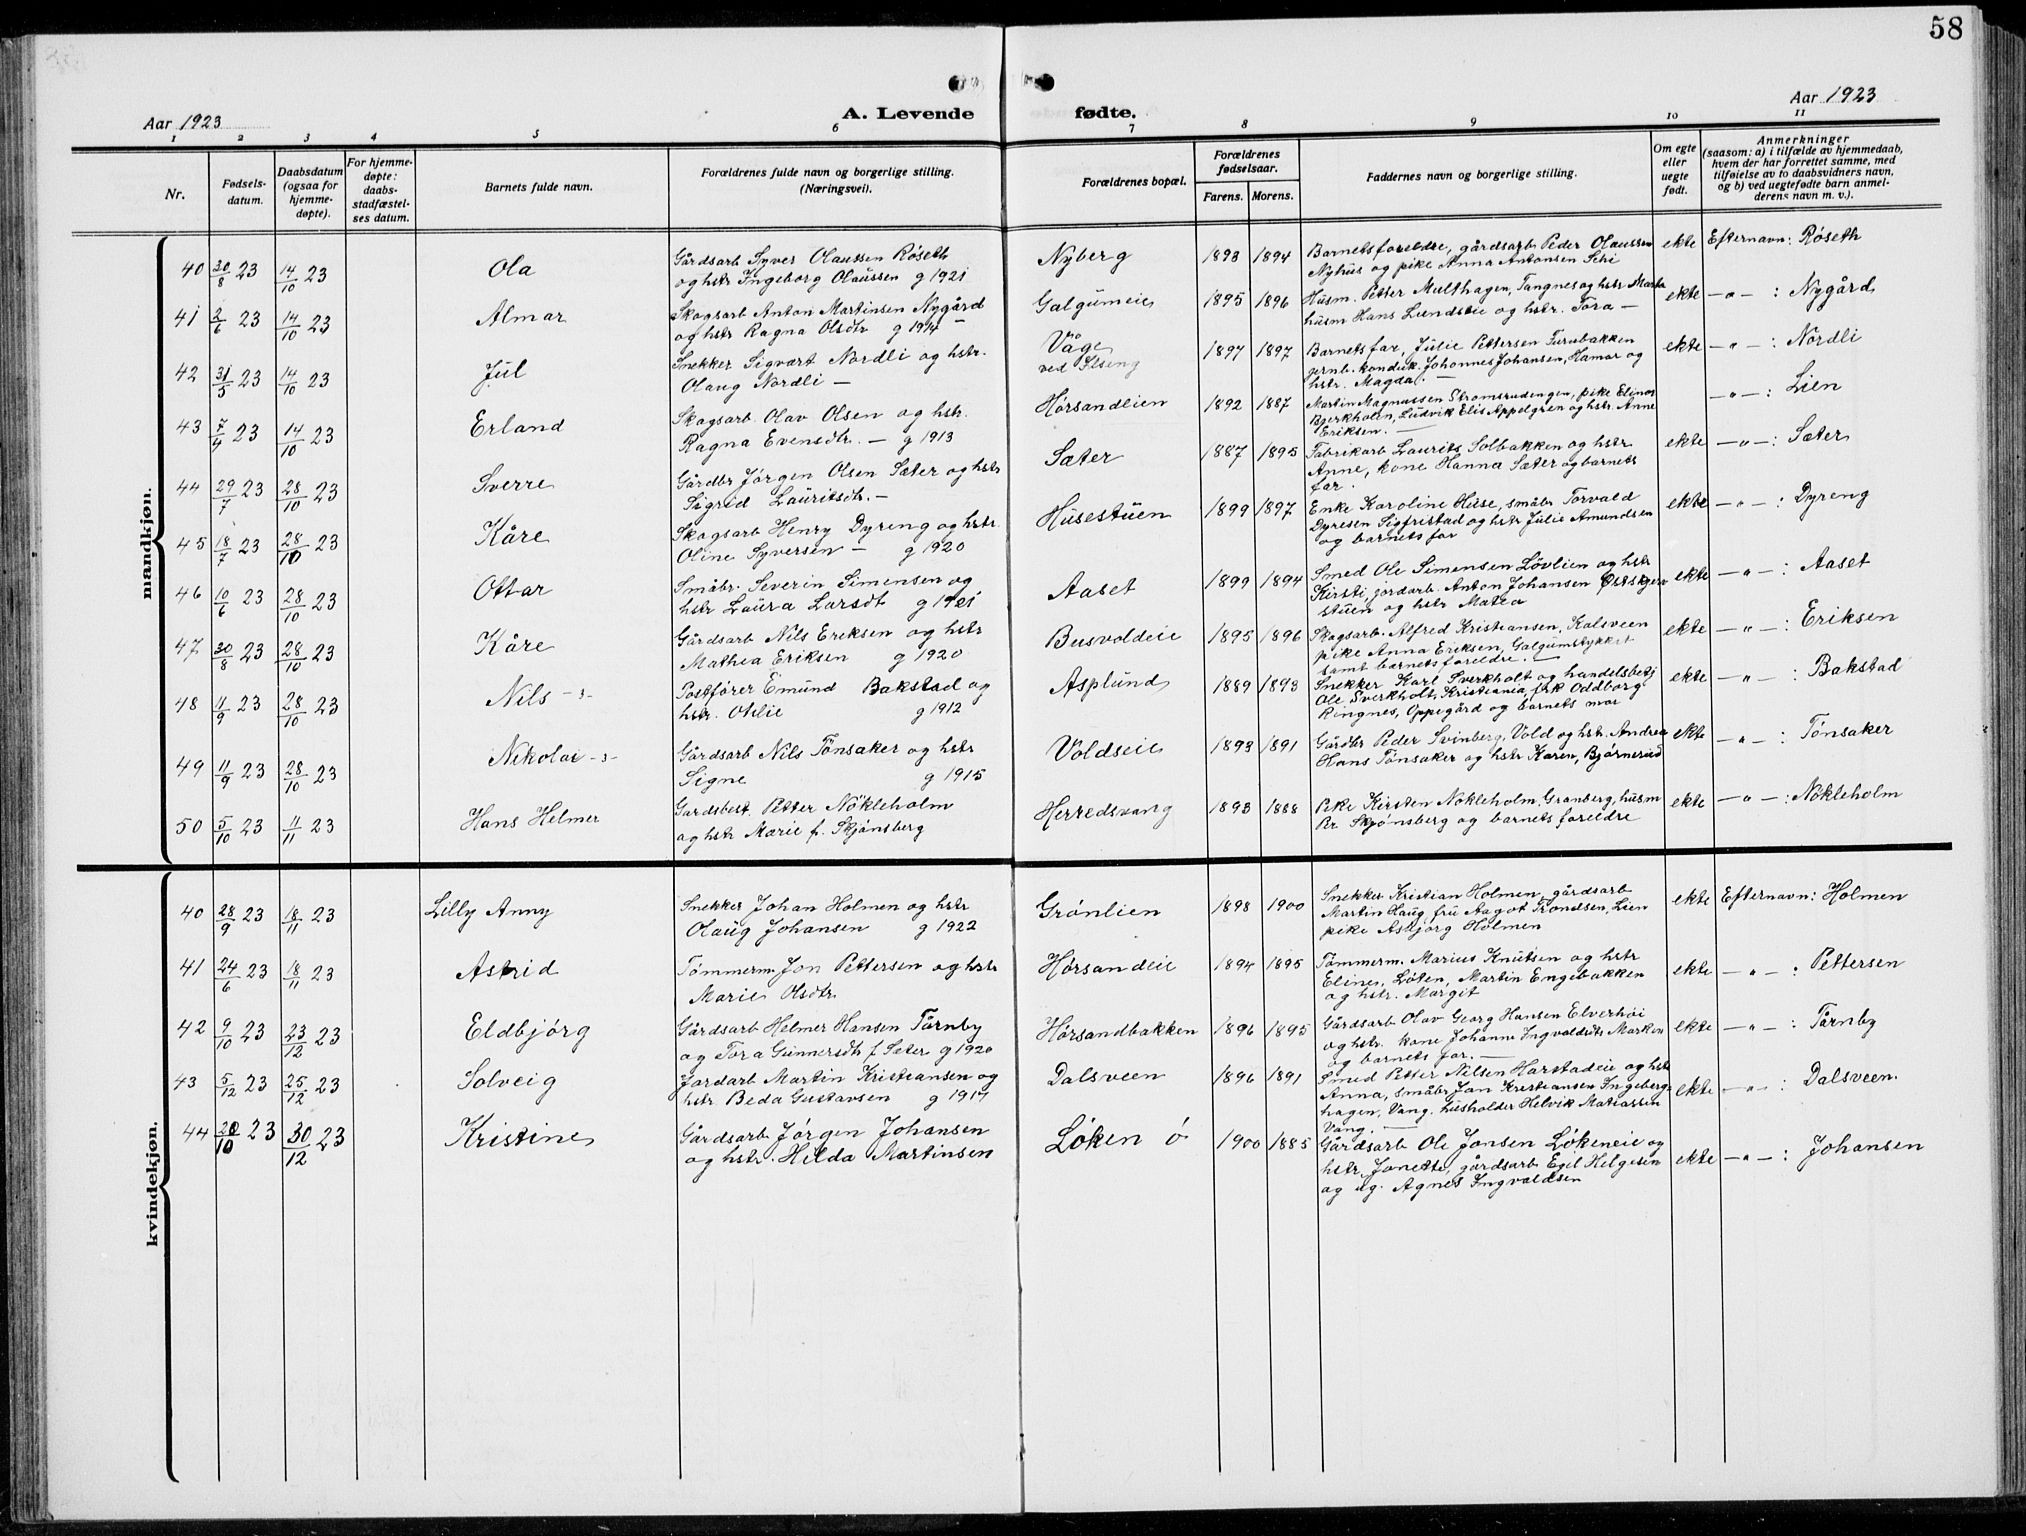 58
Aar 1923
A. Levende fødte.
Aar 1923
1 2 3 4 5 6 7 8 9 10 11
Nr.
Fødsels-
datum.
Daabsdatum
(ogsaa for
hjemme-
døpte).
For hjemme-
døpte:
daabs-
stadfæstel-
ses datum.
Barnets fulde navn.
Forældrenes fulde navn og borgerlige stilling.
(Næringsvei).
Forældrenes bopæl.
Forældrenes
fødselsaar.
Farens. Morens.
Faddernes navn og borgerlige stilling.
Om egte
eller
uegte
født.
Anmerkninger
(saasom: a) i tilfælde av hjemmedaab,
hvem der har forrettet samme, med
tilføielse av to daabsvidners navn,
og b) ved uegtefødte barn anmel-
derens navn m. v.).
mandkjøn.
40 30/8 23 14/10 23 Ola
Gårdsarb Syver Olaussen Røseth
og hstr Ingeborg Olaussen g 1921
Nyberg 1893 1894
Barnets foreldre, gårdsarb Peder Olaussen
Nyhus og pike Anna Antonsen
ekte Efternavn: Røseth
41 2/6 23 14/10 23 Almar
Skogsarb Anton Martinsen Nygård
og hstr Ragna Olsdtr g 1914 –
Galgumeie 1895 1896
Husm. Petter Multhagen, Tangnes og hstr Marta
husm Hans Lundseie og hstr. Tora –
ekte –"– : Nygård
42 31/5 23 14/10 23 Jul
Snekker Sigvart Nordli og hstr.
Olaug Nordli –
Våge
ved Ilseng 1897 1897
Barnets far, Julie Pettersen Furubakken
jernb. konduk. Johannes Johansen, Hamar og
hstr. Magda. –
ekte –"– : Nordli
43 7/4 23 14/10 23 Erland
Skogsarb. Olav Olsen og hstr.
Ragna Evensdtr. – g 1913
Hørsandlien 1892 1887
Martin Magnussen Strømsrudengen, pike Elinor
Bjerkholm, Ludvik Elis Appelgren og hstr. Anne
Eriksen. –
–"– : Lien
44 29/7 23 28/10 23 Sverre
Gårdbr Jørgen Olsen Sæter og hstr
Sigrid Lauritsdt. –
Sæter 1887 1895
Fabrikarb Laurits Solbakken og hstr.
Anne, kone Hanna Sæter og barnets
far.
ekte –"– : Sæter
45 18/7 23 28/10 23 Kåre
Skogsarb Henry Dyreng og hstr.
Oline Syversen – g 1920
Husestuen 1899 1897
Enke Karoline Huse, småbr Torvald
Dyresen Sigfristad og hstr Julie Amundsen
og barnets far
ekte –"– : Dyreng
46 10/6 23 28/10 23 Ottar
Småbr. Severin Simensen og
hstr Laura Larsdt g 1921
Aaset 1899 1894
Smed Ole Simensen Løvlien og hstr
Kirsti, jordarb. Anton Johansen
stuen og hstr Matea
ekte –"– : Aaset
47 30/8 23 28/10 23 Kåre
Gårdsarb Nils Eriksen og hstr
Mathea Eriksen g 1920
Busvoldeie 1895 1896
Skogsarb. Alfred Kristiansen, Kalsveen
pike Anna Eriksen, Galgumstykket
samt barnets foreldre. –
ekte –"– : Eriksen
48 11/9 23 28/10 23 Nils -3-
Postfører Emund Bakstad og
hstr. Otilie g 1912
Asplund 1889 1893
Snekker Karl Sverkholt og handelsbetj
Ole Sverkholt, Kristiania, frk Oddborg
Ringnes, Oppegård og barnets mor
ekte –"– : Bakstad
49 11/9 23 28/10 23 Nikolai -3-
Gårdsarb Nils Tønsaker og hstr
Signe g 1915
Voldseie 1893 1891
Gårdbr Peder Svinberg, Vold og hstr. Andrea
Hans Tønsaker og hstr Karen, Bjørnerud
ekte –"– : Tønsaker
50 5/10 23 11/11 23 Hans Helmer
Gardsbest. Petter Nökleholm
og hstr Marie f. Skjønsberg
Herredsvang 1893 1888
Pike Kirsten Nökleholm, Granberg, husm
Pr. Skjønsberg og barnets foreldre
ekte –"– : Nökleholm
kvindekjøn.
40 28/9 23 18/11 23 Lilly Anny
Snekker Johan Holmen og hstr
Olaug Johansen g 1922
Grønlien 1898 1900
Snekker Kristian Holmen, gårdsarb
Martin Haug, fru Aagot Trondsen, Lien
pike Asbjørg Holmen
ekte Efternavn: Holmen
41 24/6 23 18/11 23 Astrid
Tømmerm. Jon Pettersen og hstr
Marie Olsdtr.
Hørsandeie 1894 1895
Tømmerm. Marius Knutsen og hstr
Eline, Løten, Martin Engebakken
og hstr. Margit
ekte –"– : Pettersen
42 9/10 23 23/12 23 Eldbjørg
Gårdsarb Helmer Hansen Tørnby
og Tora Gunnersdt f. Sæter g 1920
Hørsandbakken 1896 1895
Gårdsarb Olav Georg Hansen Elverhøi
og hstr. kone Johanne Ingvaldsdt. Marken
og barnets far. –
ekte –"– : Tørnby
43 5/12 23 25/12 23 Solveig
Jordarb Martin Kristiansen og
hstr Beda Gustavsen g 1917
Dalsveen 1896 1891
Smed Petter Nilsen Harstadeie og hstr
Anna, småbr Jon Kristiansen Ingeberg-
hagen, Vang, husholder Helvik Matiassen
Vang. –
ekte –"– : Dalsveen.
44 20/10 23 30/12 23 Kristine
Gårdsarb Jørgen Johansen
og hstr. Hilda Martinsen
Løken ø 1900 1885
Gårdsarb Ole Jonsen Løkeneie og
hstr Jonette, gårdsarb Egil Helgesen
og ug. Agnes Ingvaldsen
ekte –"– : Johansen